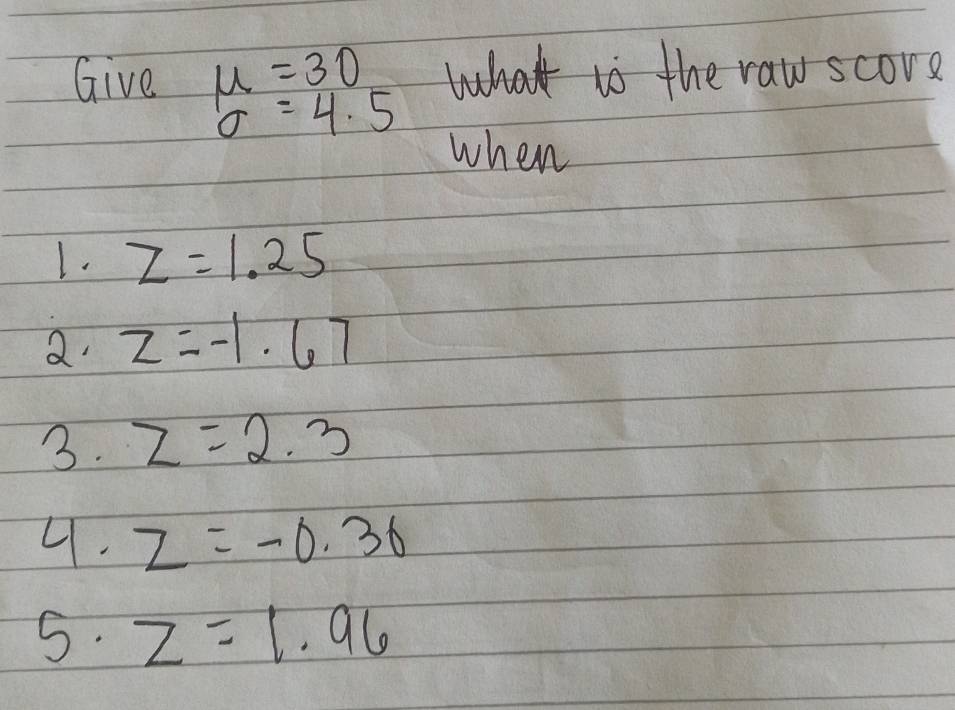 Give μ = 30 What is the raw score
σ = 4.5
when
1. Z = 1.25
2. Z = -1.67
3. Z = 2.3
4. Z = -0.36
5. Z = 1.96